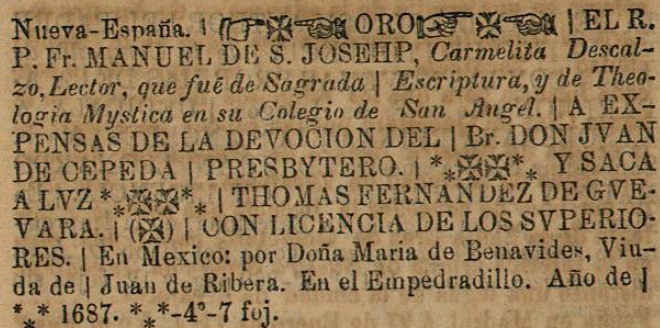 Nueva-España. | ☞✠☜ ORO ☞✠☜ | EL R.
P. Fr. MANUEL DE S. JOSEHP, Carmelita Descal-
zo, Lector, que fué de Sagrada | Escriptura, y de Theo-
logia Mystica en su Colegio de San Angel. | A EX-
PENSAS DE LA DEVOCION DEL | Br. DON JVAN
DE CEPEDA | PRESBYTERO. | *⁎✠✠*⁎ Y SACA
A LVZ *⁎✠✠*⁎ | THOMAS FERNANDEZ DE GVE-
VARA. | (✠) | CON LICENCIA DE LOS SVPERIO-
RES. | En Mexico: por Doña Maria de Benavides, Viu-
da de | Juan de Ribera. En el Empedradillo. Año de |
*⁎* 1687. *⁎*-4º-7 foj.